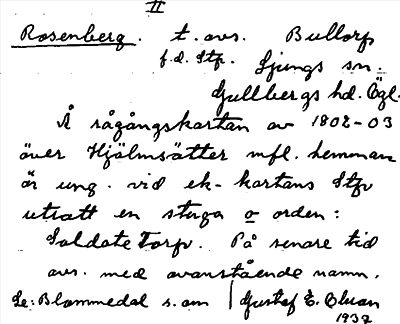 II
Rosenberg. t. avs. Bullorp
f.d. Stp. Ljungs sn.
Gullbergs hd. Ögl.
Å rågångskartan av 1802-03
över Hjälmsätter mfl. hemman
är ung. vid ek-kartans Stp
utsatt en stuga o orden:
Soldate Torp. På senare tid
avs. med ovanstående namn.
Se: Blommedal s. om Gustaf E. Eluan
1932